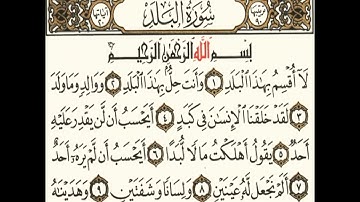 سُورَةُ الْبَلَدِ
بِسْمِ اللَّهِ الرَّحْمَٰنِ الرَّحِيمِ
لَا أُقْسِمُ بِهَٰذَا الْبَلَدِ ١ وَأَنتَ حِلٌّ بِهَٰذَا الْبَلَدِ ٢ وَوَالِدٍ وَمَا وَلَدَ
٣ لَقَدْ خَلَقْنَا الْإِنسَٰنَ فِي كَبَدٍ ٤ أَيَحْسَبُ أَن لَّن يَقْدِرَ عَلَيْهِ
أَحَدٌ ٥ يَقُولُ أَهْلَكْتُ مَالًا لُّبَدًا ٦ أَيَحْسَبُ أَن لَّمْ يَرَهُ أَحَدٌ
٧ أَلَمْ نَجْعَل لَّهُ عَيْنَيْنِ ٨ وَلِسَانًا وَشَفَتَيْنِ ٩ وَهَدَيْنَٰهُ